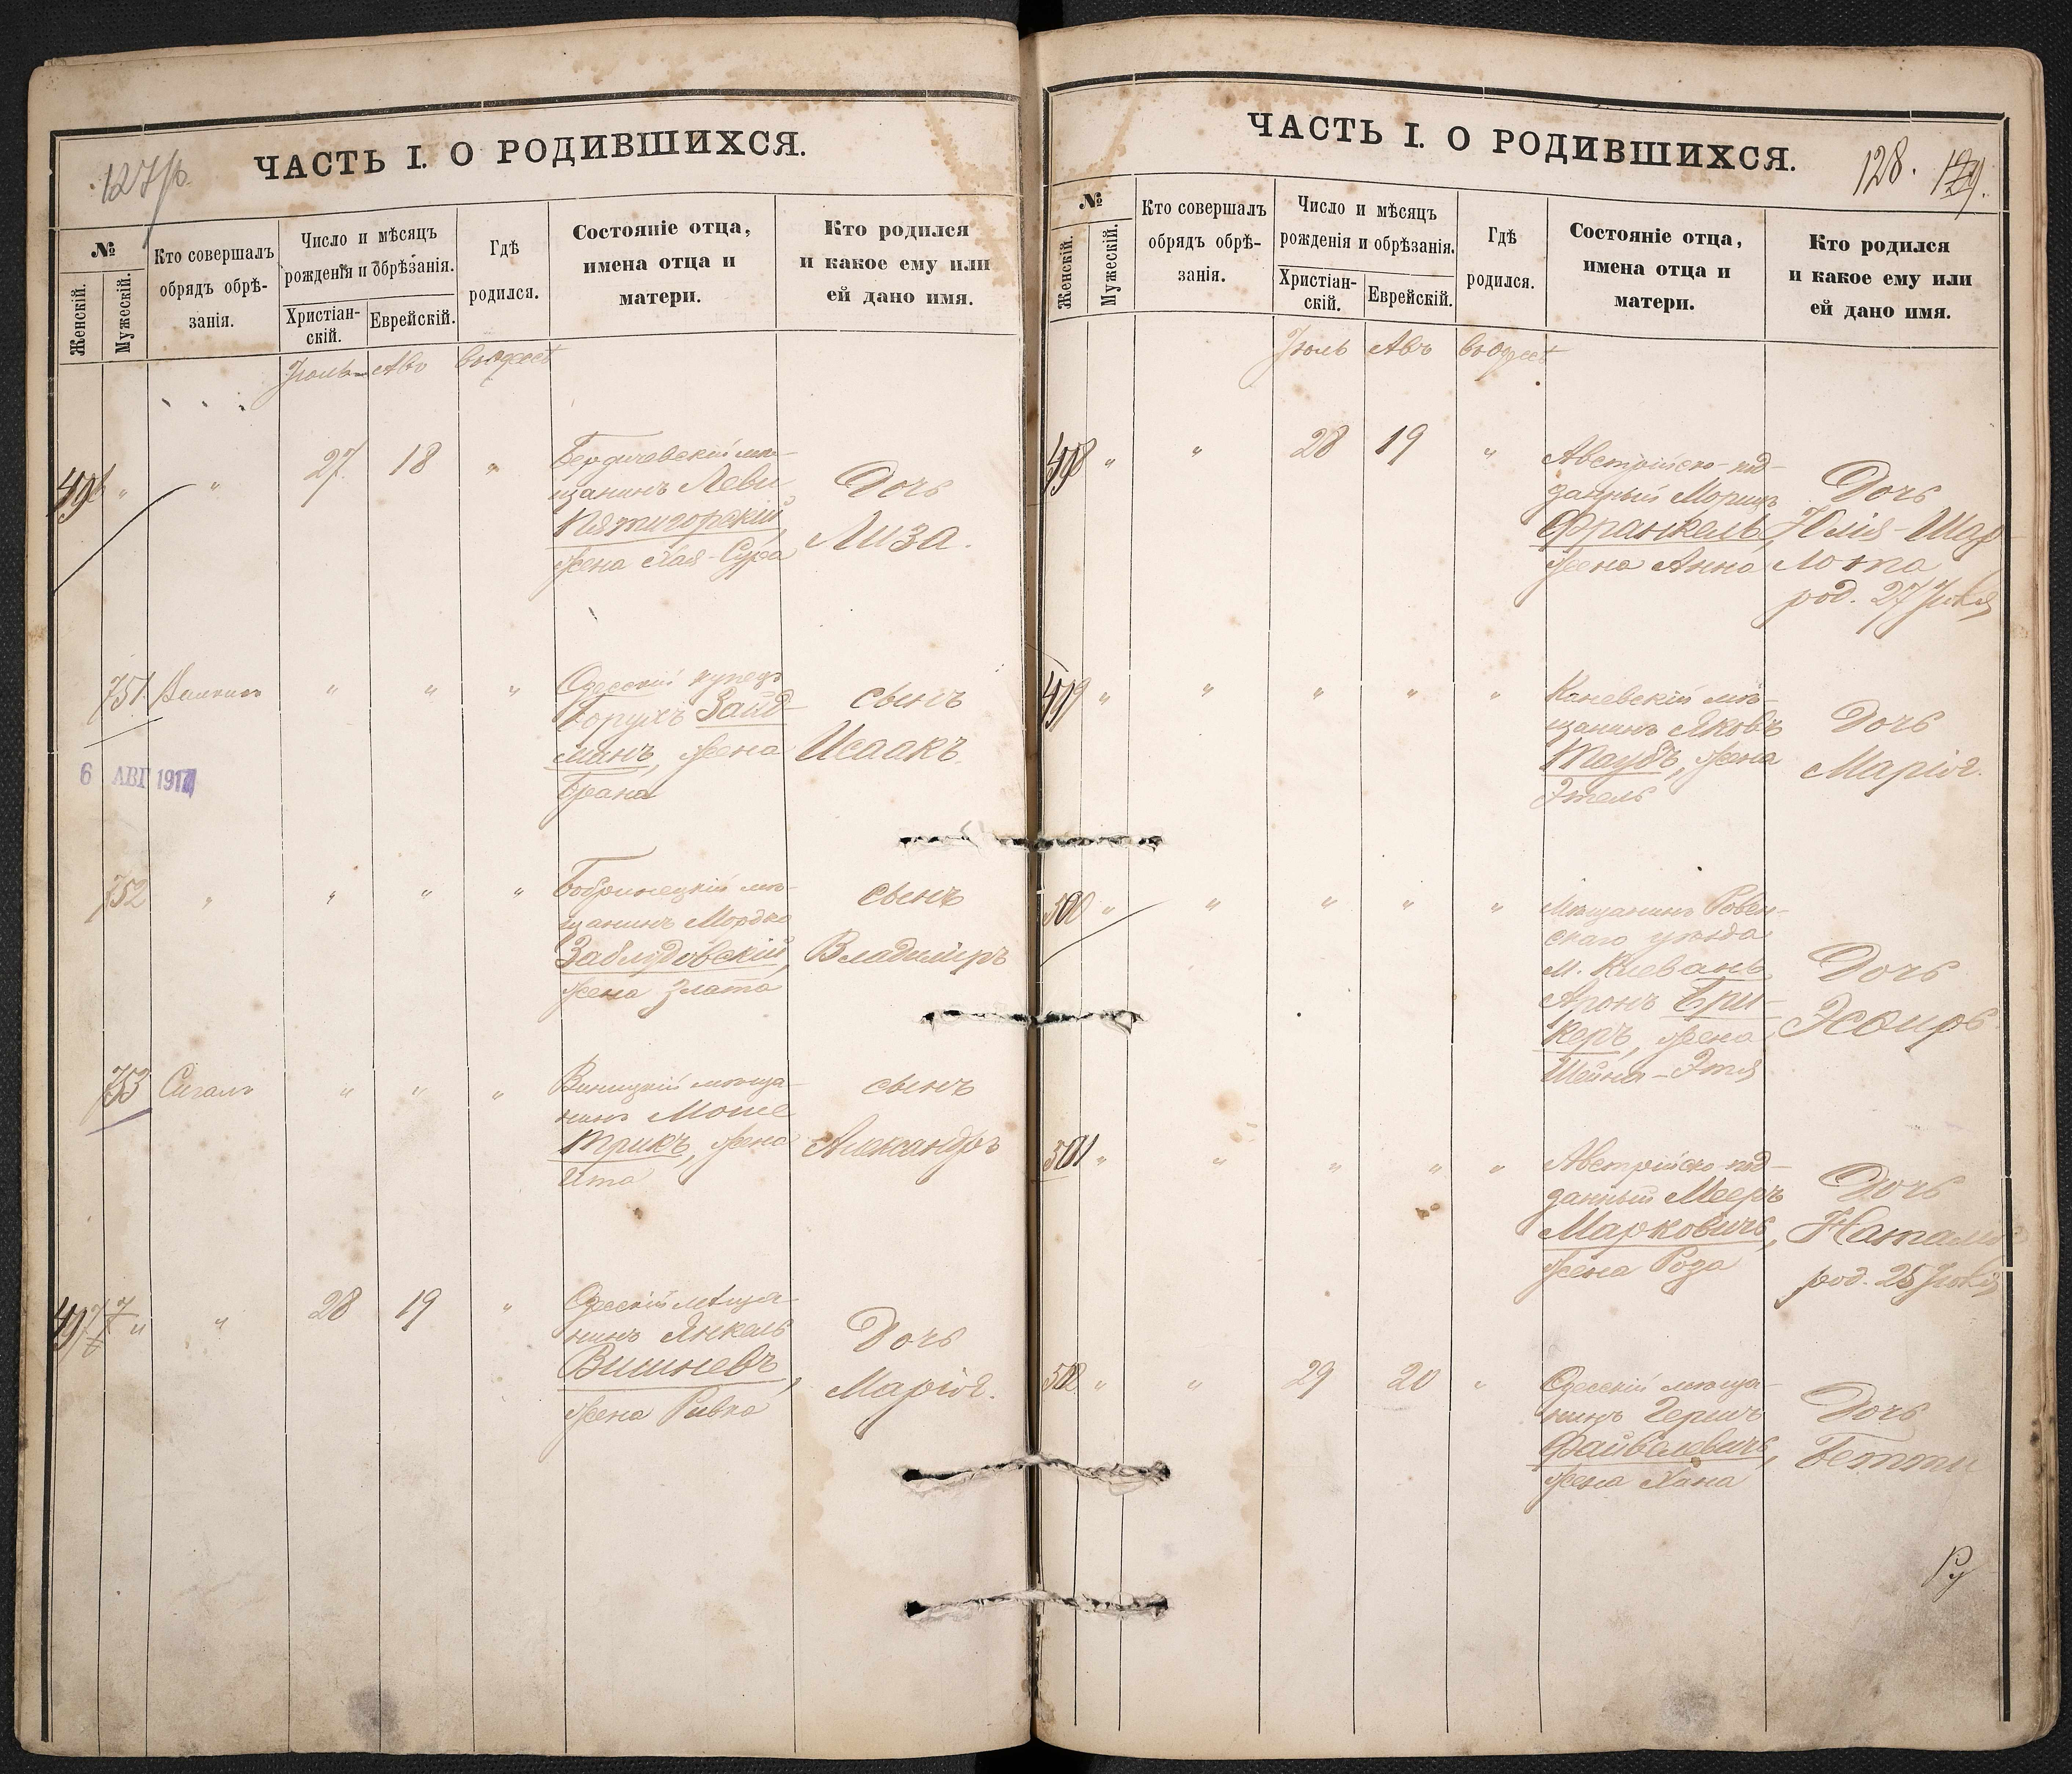 127/об.
ЧАСТЬ I. О РОДИВШИХСЯ.
№
Женскій.
Мужескій.
Кто совершалъ
обрядъ обрѣ-
занія.
Число и мѣсяцъ
рожденія и обрѣзанія.
Христіан-
скій.
Еврейскій.
Гдѣ
родился.
Состояніе отца,
имена отца и
матери.
Кто родился
и какое ему или
ей дано имя.
Іюль Авъ въ Одессѣ
496 " " 27 18 "
Бердичевскій мѣ-
щанинъ Леви
Пятигорскій,
жена Хая-Сура
Дочь
Лиза.
751. " " "
Одесскій купецъ
Борухъ Зайд-
манъ, жена
Брана
сынъ
Исаакъ.
6 АВГ 1917
752 " " " " "
Бобринецкій мѣ-
щанинъ Мордко
Заблудовскій,
жена Злата
сынъ
Владиміръ
753 Сигалъ " " "
Виницкій мѣща-
нинъ Моше
Трикъ, жена
Ита
сынъ
Александръ
497 " " 28 19 "
Одесскій мѣща-
нинъ Янкель
Вишневъ,
жена Ривка
Дочь
Марія.
ЧАСТЬ I. О РОДИВШИХСЯ.
128. 129.
№
Женскій.
Мужескій.
Кто совершалъ
обрядъ обрѣ-
занія.
Число и мѣсяцъ
рожденія и обрѣзанія.
Христіан-
скій.
Еврейскій.
Гдѣ
родился.
Состояніе отца,
имена отца и
матери.
Кто родился
и какое ему или
ей дано имя.
Іюль Авъ въ Одессѣ
498 " " 28 19 "
Австрійско-под-
данный Морицъ
Франкель,
жена Анна
Дочь
Юлія-Шар-
лота
род. 27 Іюля
499 " " " " "
Каневскій мѣ-
щанинъ Яковъ
Таубъ, жена
Этель
Дочь
Марія.
500 " " " " "
Мѣщанинъ Ровен-
скаго уѣзда
м. Клевань
Аронъ Бри-
керъ, жена
Шейна-Этя
Дочь
Эсѳирь.
501 " " " " "
Австрійско-под-
данный Мееръ
Марковичъ,
жена Роза
Дочь
Наталія
род. 25 Іюля
502 " " 29 20 "
Одесскій мѣща-
нинъ Гершъ
Файвелевичъ,
жена Хана
Дочь
Бетти